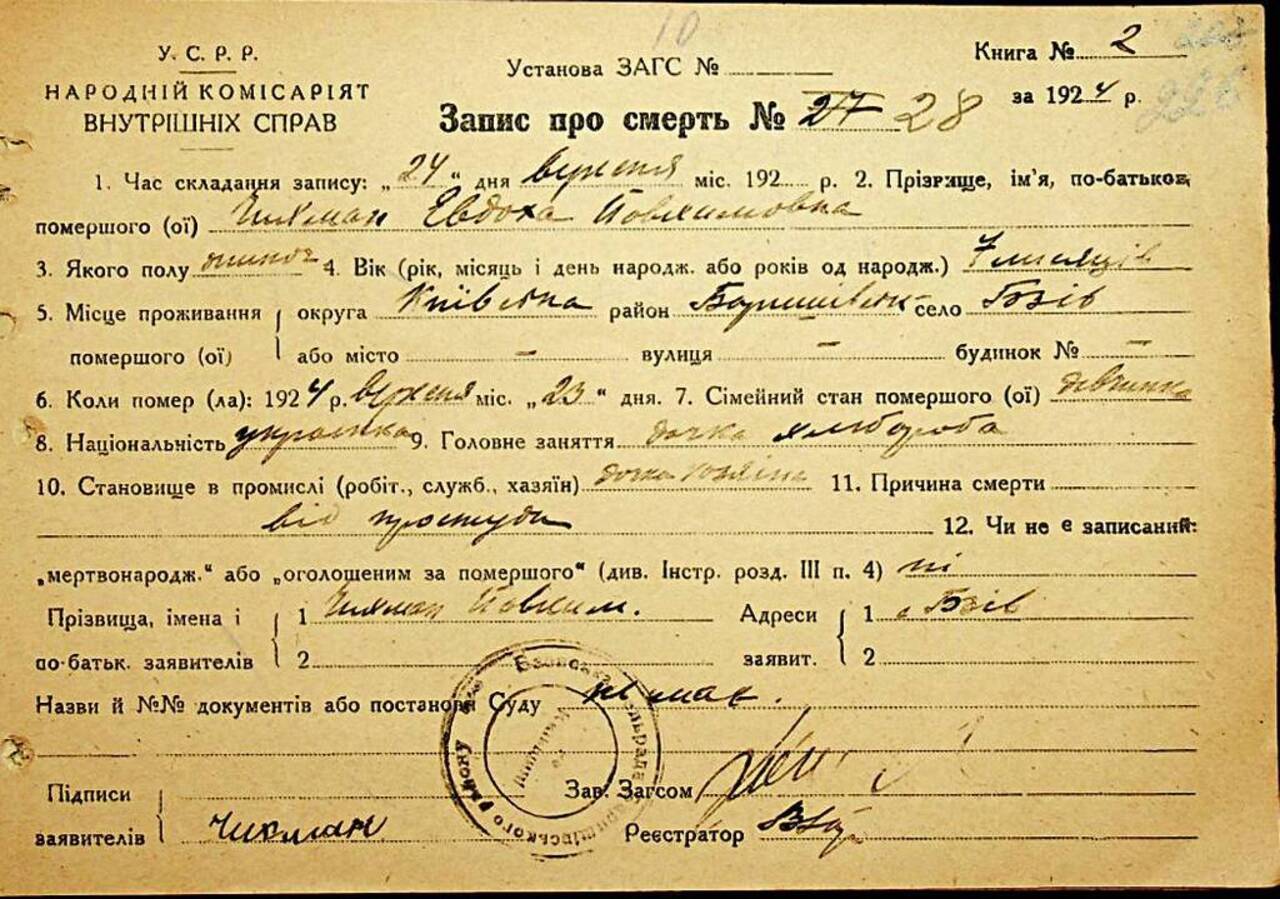 10
У. С. Р. Р.
НАРОДНІЙ КОМІСАРІЯТ
ВНУТРІШНІХ СПРАВ
Установа ЗАГС №
Книга № 2
за 1924 р.
Запис про смерть № 27 28
1. Час складання запису: „24“ дня вересня міс. 192 р. 2. Прізвище, ім’я, по-батькові
помершого (ої) Чикман Евдоха Йовхимовка
3. Якого полу 4. Вік (рік, місяць і день народж. або років од народж.) 7 місяців
5. Місце проживання округа Київська район Баришівськ село Бзів
помершого (ої) або місто — вулиця — будинок № —
6. Коли помер (ла): 1924 р. вересня міс. „23“ дня. 7. Сімейний стан помершого (ої) дівчинка
8. Національність украінка 9. Головне заняття дочка хлібороба
10. Становище в промислі (робіт., служб., хазяїн) дочка хозяіна 11. Причина смерти
від простуди 12. Чи не є записаний:
„мертвонародж.“ або „оголошеним за помершого“ (див. Інстр. розд. III п. 4) ні
Прізвища, імена і 1 Чикман Йовхим. Адреси 1 с Бзів
по-батьк. заявителів 2 заявит. 2
Назви й №№ документів або постанови Суду немає.
Підписи Зав. Загсом
заявителів Чикман Реєстратор